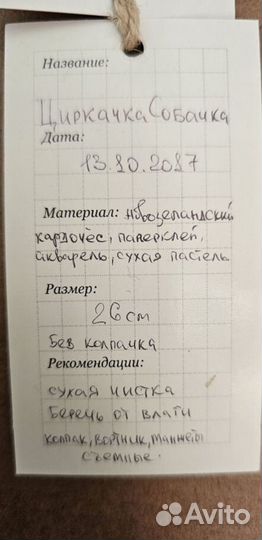 Название:
Циркачка Собачка
Дата:
13.10.2017
Материал: новозеландский
кардочёс, паперклей,
акварель, сухая пастель
Размер:
26 cm
Без колпачка
Рекомендации:
сухая чистка
Беречь от влаги
колпак, вортник, манжеты
съемные.
Avito